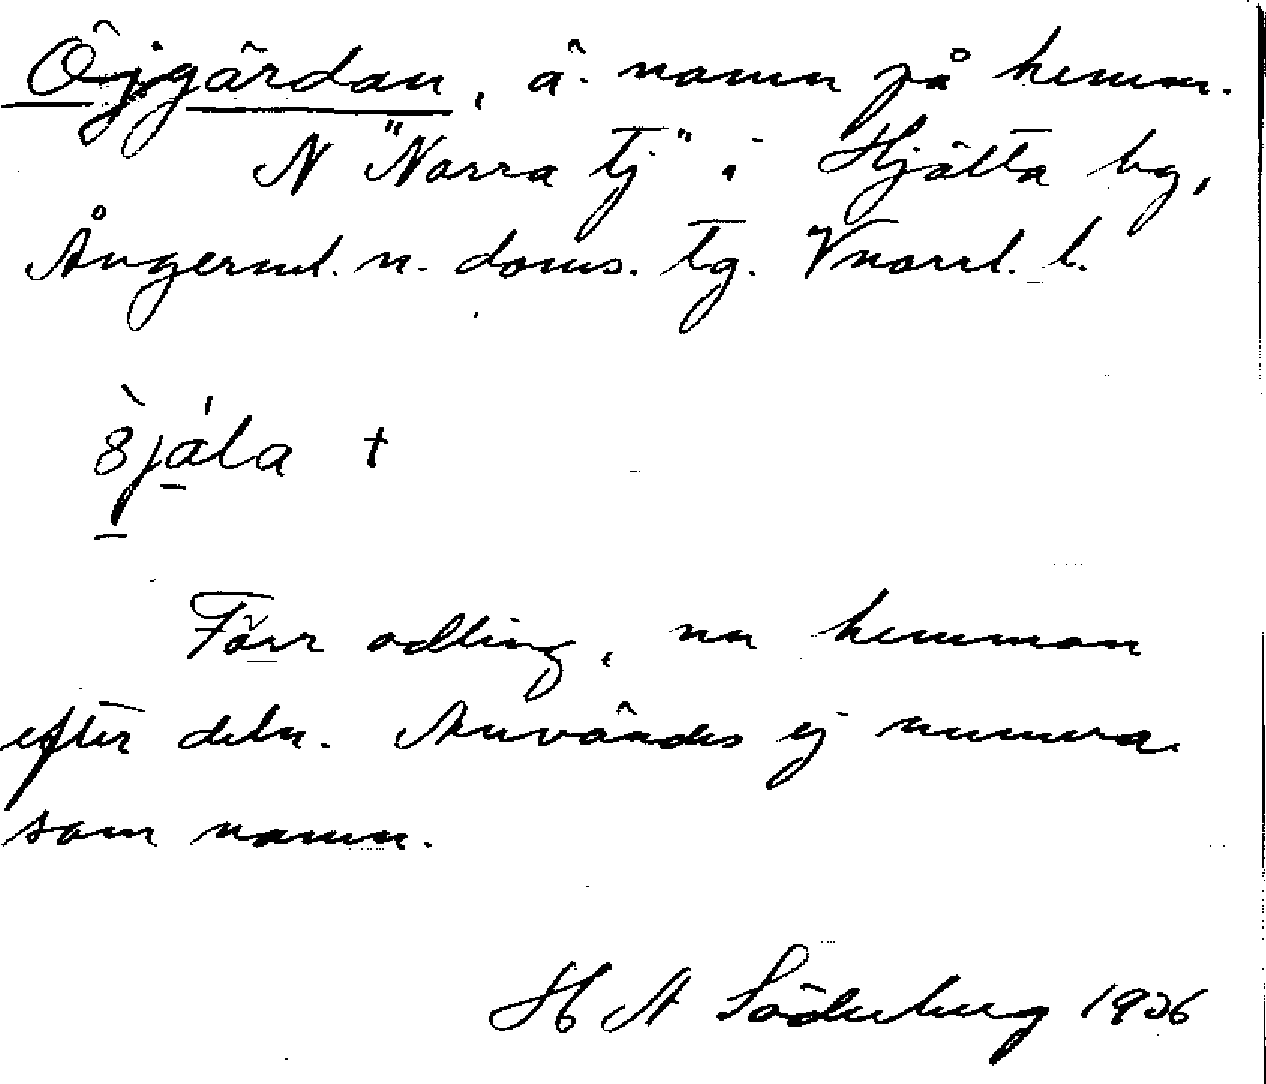 Öjgärdan, ä. namn på hemm.
N "Norra tj" i Hjälta by,
Ångerml. n. doms. tg. Vnorrl. l.
Förr odling, nu hemman
efter deln. Användes ej numera
som namn.
H A Söderberg 1936